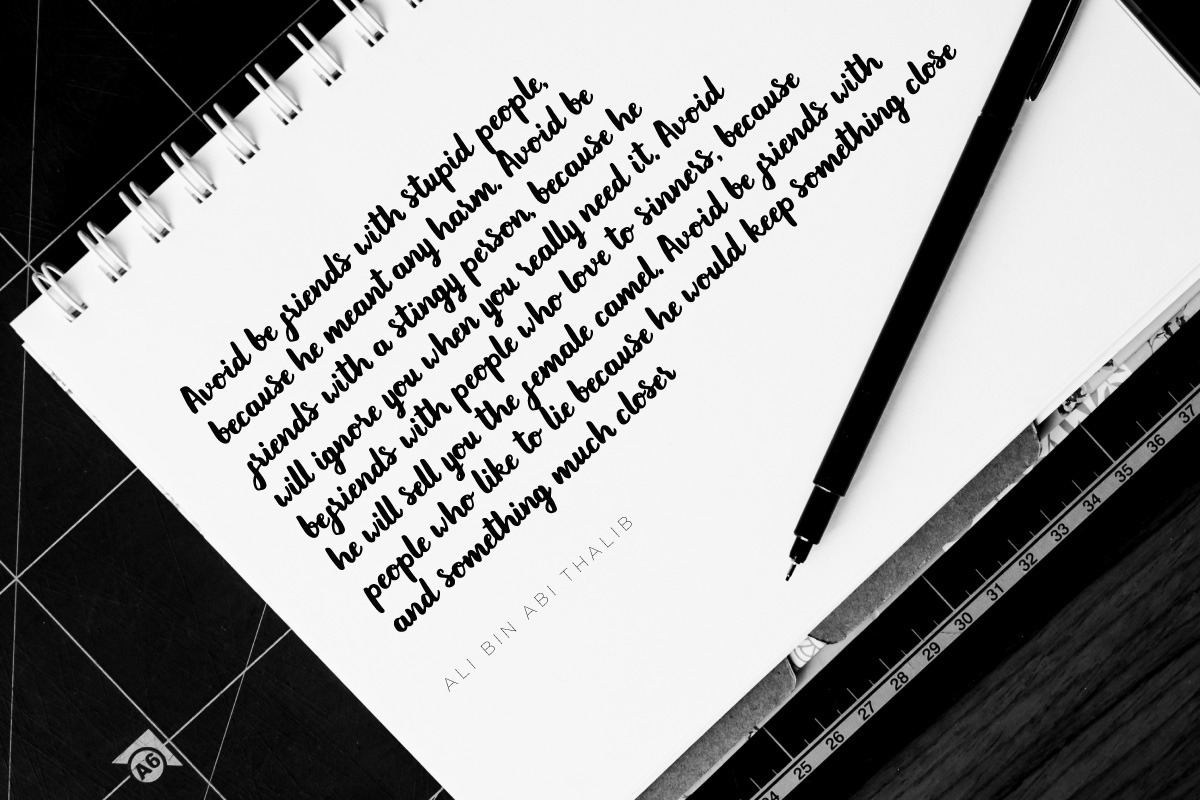 Avoid be friends with stupid people,
because he meant any harm. Avoid be
friends with a stingy person, because he
will ignore you when you really need it. Avoid
befriends with people who love to sinners, because
he will sell you the female camel. Avoid be friends with
people who like to lie because he would keep something close
and something much closer
ALI BIN ABI THALIB
A6
24
25
26
27
28
29
30
31
32
33
34
35
36
37